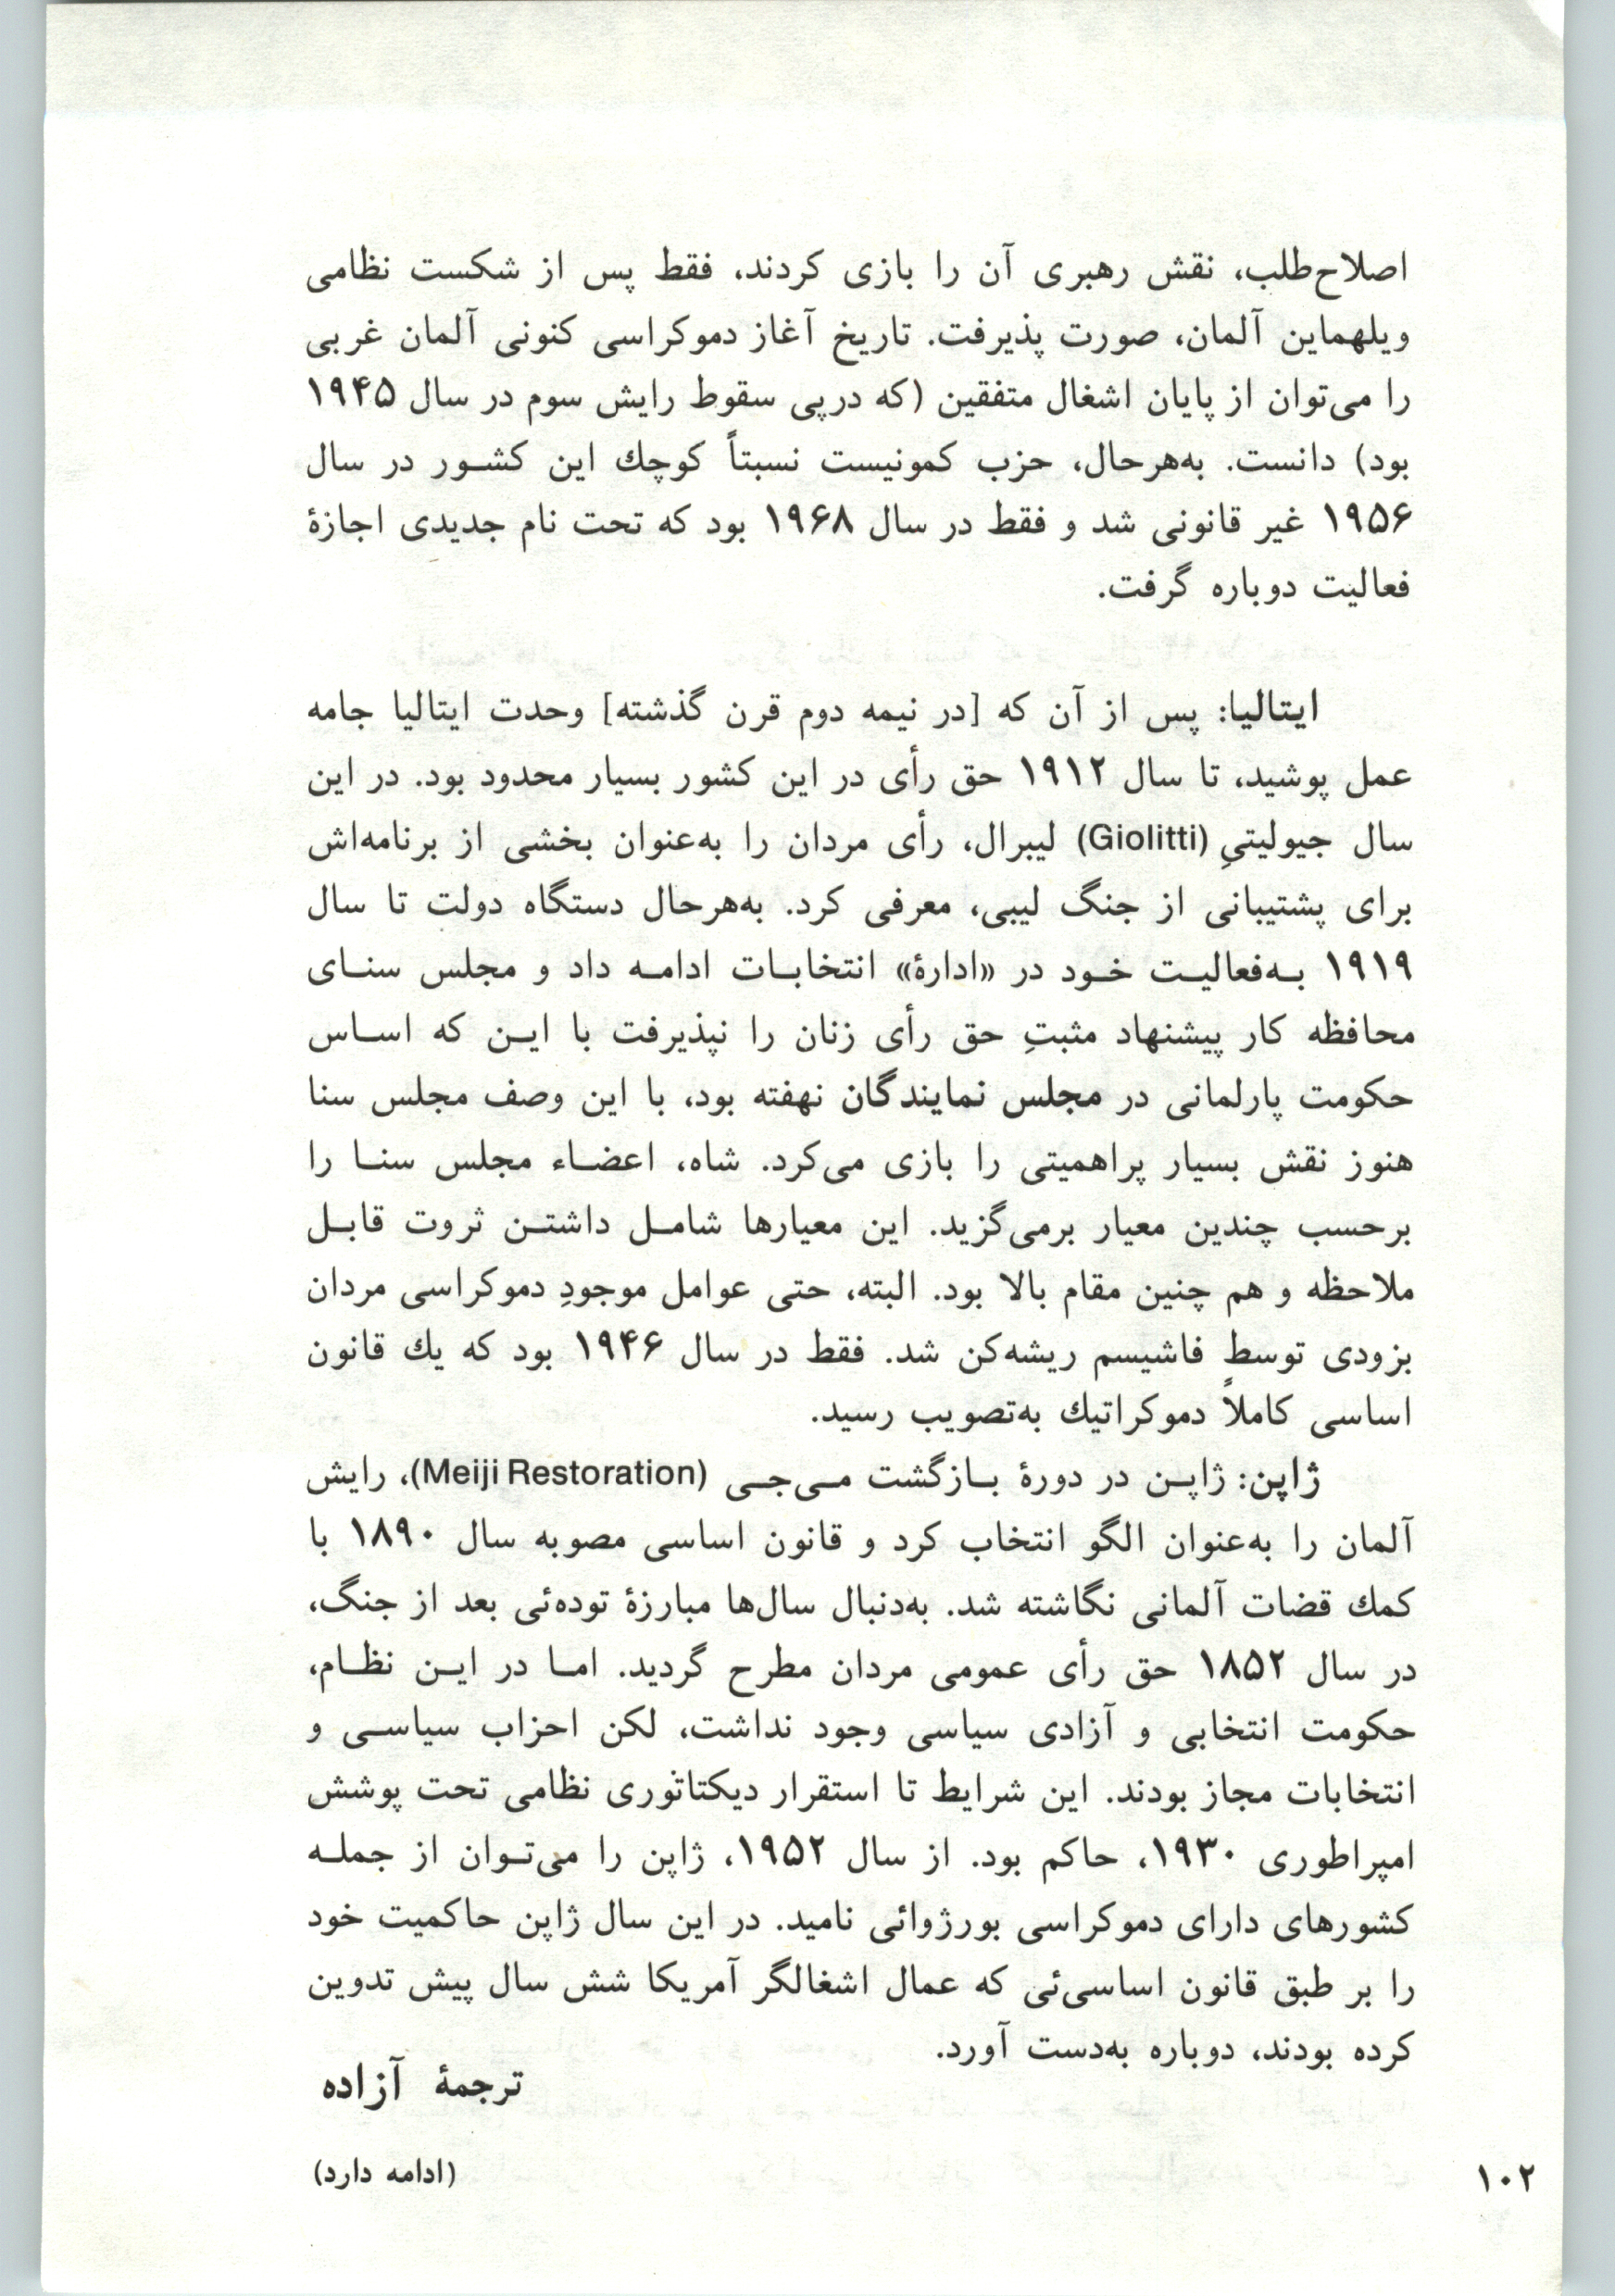 اصلاح‌طلب، نقش رهبری آن را بازی کردند، فقط پس از شکست نظامی
ویلهماین آلمان، صورت پذیرفت. تاریخ آغاز دموکراسی کنونی آلمان غربی
را می‌توان از پایان اشغال متفقین (که درپی سقوط رایش سوم در سال ۱۹۴۵
بود) دانست. به‌هرحال، حزب کمونیست نسبتاً کوچك این کشـور در سال
۱۹۵۶ غیر قانونی شد و فقط در سال ۱۹۶۸ بود که تحت نام جدیدی اجازۀ
فعالیت دوباره گرفت.
ایتالیا: پس از آن که [در نیمه دوم قرن گذشته] وحدت ایتالیا جامه
عمل پوشید، تا سال ۱۹۱۲ حق رأی در این کشور بسیار محدود بود. در این
سال جیولیتیِ (Giolitti) لیبرال، رأی مردان را به‌عنوان بخشی از برنامه‌اش
برای پشتیبانی از جنگ لیبی، معرفی کرد. به‌هرحال دستگاه دولت تا سال
۱۹۱۹ بـه‌فعالیـت خـود در «ادارۀ» انتخابـات ادامـه داد و مجلس سنـای
محافظه کار پیشنهاد مثبتِ حق رأی زنان را نپذیرفت با ایـن که اسـاس
حکومت پارلمانی در مجلس نمایندگان نهفته بود، با این وصف مجلس سنا
هنوز نقش بسیار پراهمیتی را بازی می‌کرد. شاه، اعضـاء مجلس سنـا را
برحسب چندین معیار برمی‌گزید. این معیارها شامـل داشتـن ثروت قابـل
ملاحظه و هم چنین مقام بالا بود. البته، حتی عوامل موجودِ دموکراسی مردان
بزودی توسط فاشیسم ریشه‌کن شد. فقط در سال ۱۹۴۶ بود که یك قانون
اساسی کاملاً دموکراتیك به‌تصویب رسید.
ژاپن: ژاپـن در دورۀ بـازگشت مـی‌جـی (Meiji Restoration)، رایش
آلمان را به‌عنوان الگو انتخاب کرد و قانون اساسی مصوبه سال ۱۸۹۰ با
کمك قضات آلمانی نگاشته شد. به‌دنبال سال‌ها مبارزۀ توده‌ئی بعد از جنگ،
در سال ۱۸۵۲ حق رأی عمومی مردان مطرح گردید. امـا در ایـن نظـام،
حکومت انتخابی و آزادی سیاسی وجود نداشت، لکن احزاب سیاسـی و
انتخابات مجاز بودند. این شرایط تا استقرار دیکتاتوری نظامی تحت پوشش
امپراطوری ۱۹۳۰، حاکم بود. از سال ۱۹۵۲، ژاپن را می‌تـوان از جملـه
کشورهای دارای دموکراسی بورژوائی نامید. در این سال ژاپن حاکمیت خود
را بر طبق قانون اساسی‌ئی که عمال اشغالگر آمریکا شش سال پیش تدوین
کرده بودند، دوباره به‌دست آورد.
ترجمۀ آزاده
(ادامه دارد)
۱۰۲